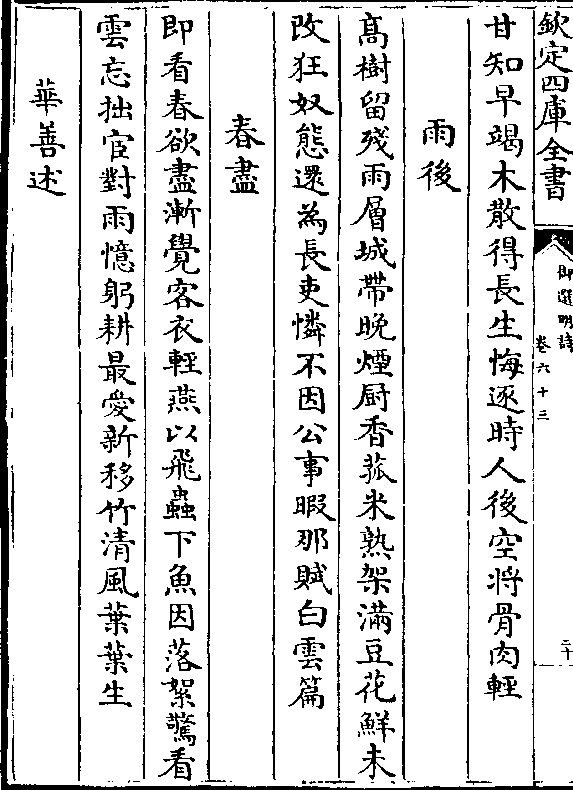 欽定四庫全書
御選明詩
卷六十三
二十
甘知早竭木散得長生悔逐時人後空將骨肉輕
雨後
高樹留殘雨層城帶晚煙厨香菰米熟架滿豆花鮮未
改狂奴態還為長吏憐不因公事暇那賦白雲篇
春盡
即看春欲盡漸覺客衣輕燕以飛蟲下魚因落絮驚看
雲忘拙宦對雨憶躬耕最愛新移竹清風葉葉生
華善述